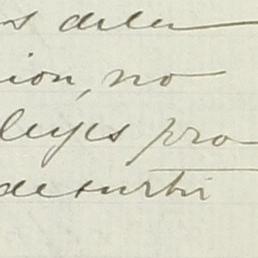 s deben
ion, no
leyes pro
de surtir